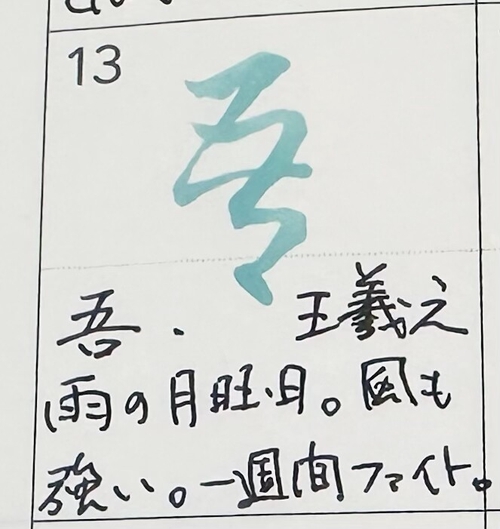 13
吾
吾. 王羲之
雨の月曜日。風も
強い。一週間ファイト。